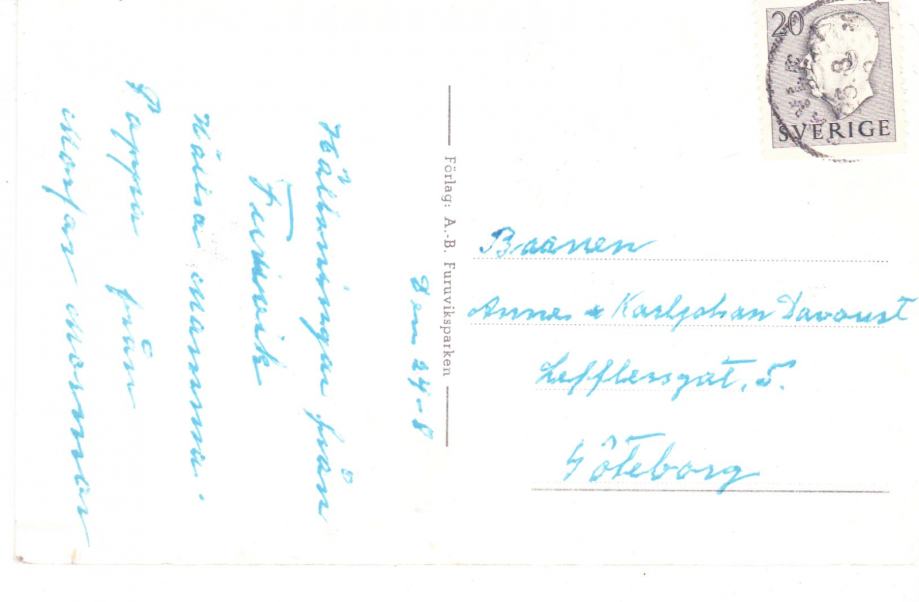 Den 24-8
Hälsningar från
Furuvik
Hälsa Mamma.
Pappa från
Morfar Mormor
Förlag: A.-B. Furuviksparken
20
SVERIGE
Baanen
Anne & Karljohan Davoust
Lefflersgat. 5.
Göteborg